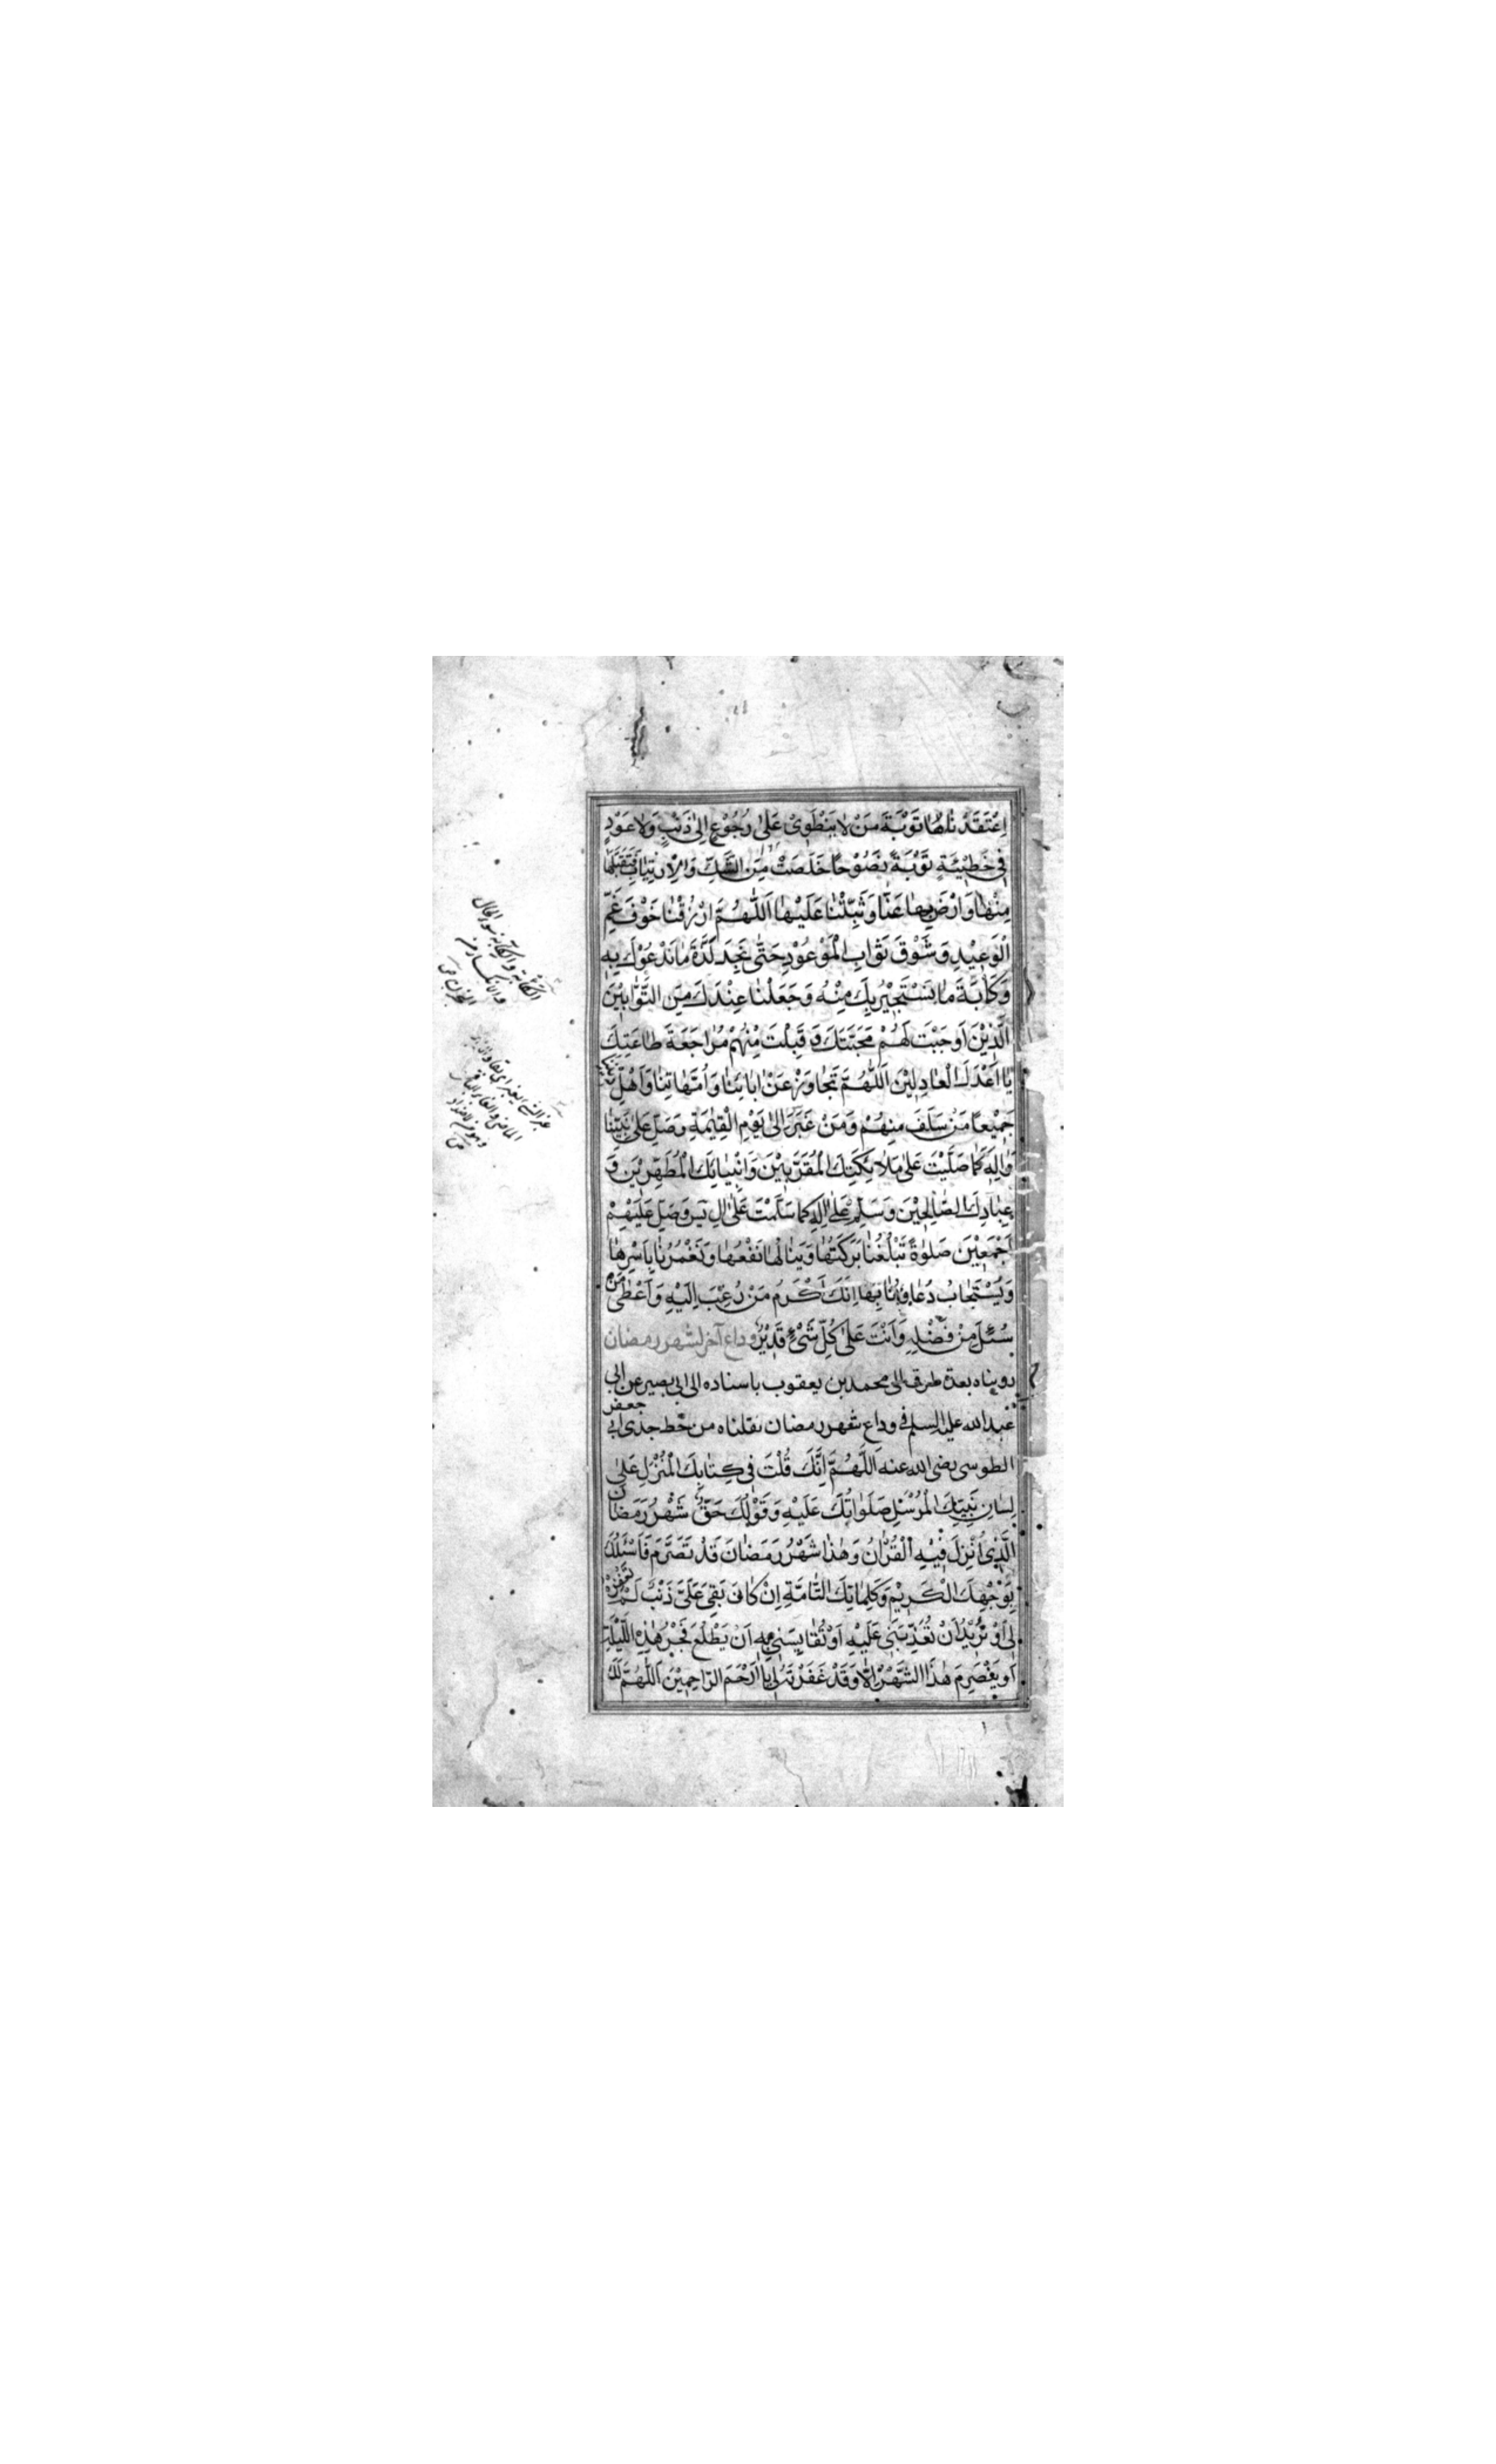 اِعْتَقَدْنَاهَا تَوْبَةَ مَنْ لَا يَنْطَوِيْ عَلٰى رُجُوْعٍ اِلٰى ذَنْبٍ وَلَا عَوْدٍ
فِي خَطِيْئَةٍ تَوْبَةً نَصُوْحًا خَلَصَتْ مِنَ الشَّكِّ وَالْاِرْتِيَابِ فَتَقَبَّلْهَا
مِنَّا وَارْضَ بِهَا عَنَّا وَثَبِّتْنَا عَلَيْهَا اَللّٰهُمَّ ارْزُقْنَا خَوْفَ غَمِّ
الْوَعِيْدِ وَشَوْقَ ثَوَابِ الْمَوْعُوْدِ حَتّٰى نَجِدَ لَذَّةَ مَا نَدْعُوْكَ بِهِ
وَكَاٰبَةَ مَا نَسْتَجِيْرُ بِكَ مِنْهُ وَجَعَلْنَا عِنْدَكَ مِنَ التَّوَّابِيْنَ
الَّذِيْنَ اَوْجَبْتَ لَهُمْ مَحَبَّتَكَ وَقَبِلْتَ مِنْهُمْ مُرَاجَعَةَ طَاعَتِكَ
يَا اَعْدَلَ الْعَادِلِيْنَ اَللّٰهُمَّ تَجَاوَزْ عَنْ اٰبَائِنَا وَاُمَّهَاتِنَا وَاَهْلِ
جَمِيْعًا مَنْ سَلَفَ مِنْهُمْ وَمَنْ غَبَرَ اِلٰى يَوْمِ الْقِيٰمَةِ وَصَلِّ عَلٰى نَبِيِّنَا
وَاٰلِهِ كَمَا صَلَّيْتَ عَلٰى مَلَائِكَتِكَ الْمُقَرَّبِيْنَ وَاَنْبِيَائِكَ الْمُطَهَّرِيْنَ وَ
عِبَادِكَ الصَّالِحِيْنَ وَسَلِّمْ عَلٰى اٰلِهِ كَمَا سَلَّمْتَ عَلٰى اٰلِ يٰسٓ وَصَلِّ عَلَيْهِمْ
اَجْمَعِيْنَ صَلٰوةً تَبْلُغُنَا بَرَكَتُهَا وَيَنَالُنَا نَفْعُهَا وَتَغْمُرُنَا بِاَسْرِهَا
وَيُسْتَجَابُ دُعَاؤُنَا بِهَا اِنَّكَ اَكْرَمُ مَنْ رُغِبَ اِلَيْهِ وَاَعْطٰى مَنْ
سُئِلَ مِنْ فَضْلِهِ وَاَنْتَ عَلٰى كُلِّ شَىْءٍ قَدِيْرٌ وداع آخر لشهر رمضان
رويناه بعدة طرق الى محمد بن يعقوب باسناده الى ابى بصير عن ابى
عبد الله عليه السلم في وداع شهر رمضان نقلناه من خط جدى ابى جعفر
الطوسى رضى الله عنه اَللّٰهُمَّ اِنَّكَ قُلْتَ فِي كِتَابِكَ الْمُنْزَلِ عَلٰى
لِسَانِ نَبِيِّكَ الْمُرْسَلِ صَلَوَاتُكَ عَلَيْهِ وَقَوْلُكَ حَقٌّ شَهْرُ رَمَضَانَ
الَّذِىْ اُنْزِلَ فِيْهِ الْقُرْاٰنُ وَهٰذَا شَهْرُ رَمَضَانَ قَدْ تَصَرَّمَ فَاَسْئَلُكَ
بِوَجْهِكَ الْكَرِيْمِ وَكَلِمَاتِكَ التَّامَّةِ اِنْ كَانَ بَقِيَ عَلَيَّ ذَنْبٌ لَمْ تَغْفِرْهُ
لِى اَوْ تُرِيْدُ اَنْ تُعَذِّبَنِى عَلَيْهِ اَوْ تُقَايِسَنِى بِهِ اَنْ يَطْلُعَ فَجْرُ هٰذِهِ اللَّيْلَةِ
اَو يَنْصَرِمَ هٰذَا الشَّهْرُ اِلَّا وَقَدْ غَفَرْتَهُ لِى يَا اَرْحَمَ الرَّاحِمِيْنَ اَللّٰهُمَّ لَكَ